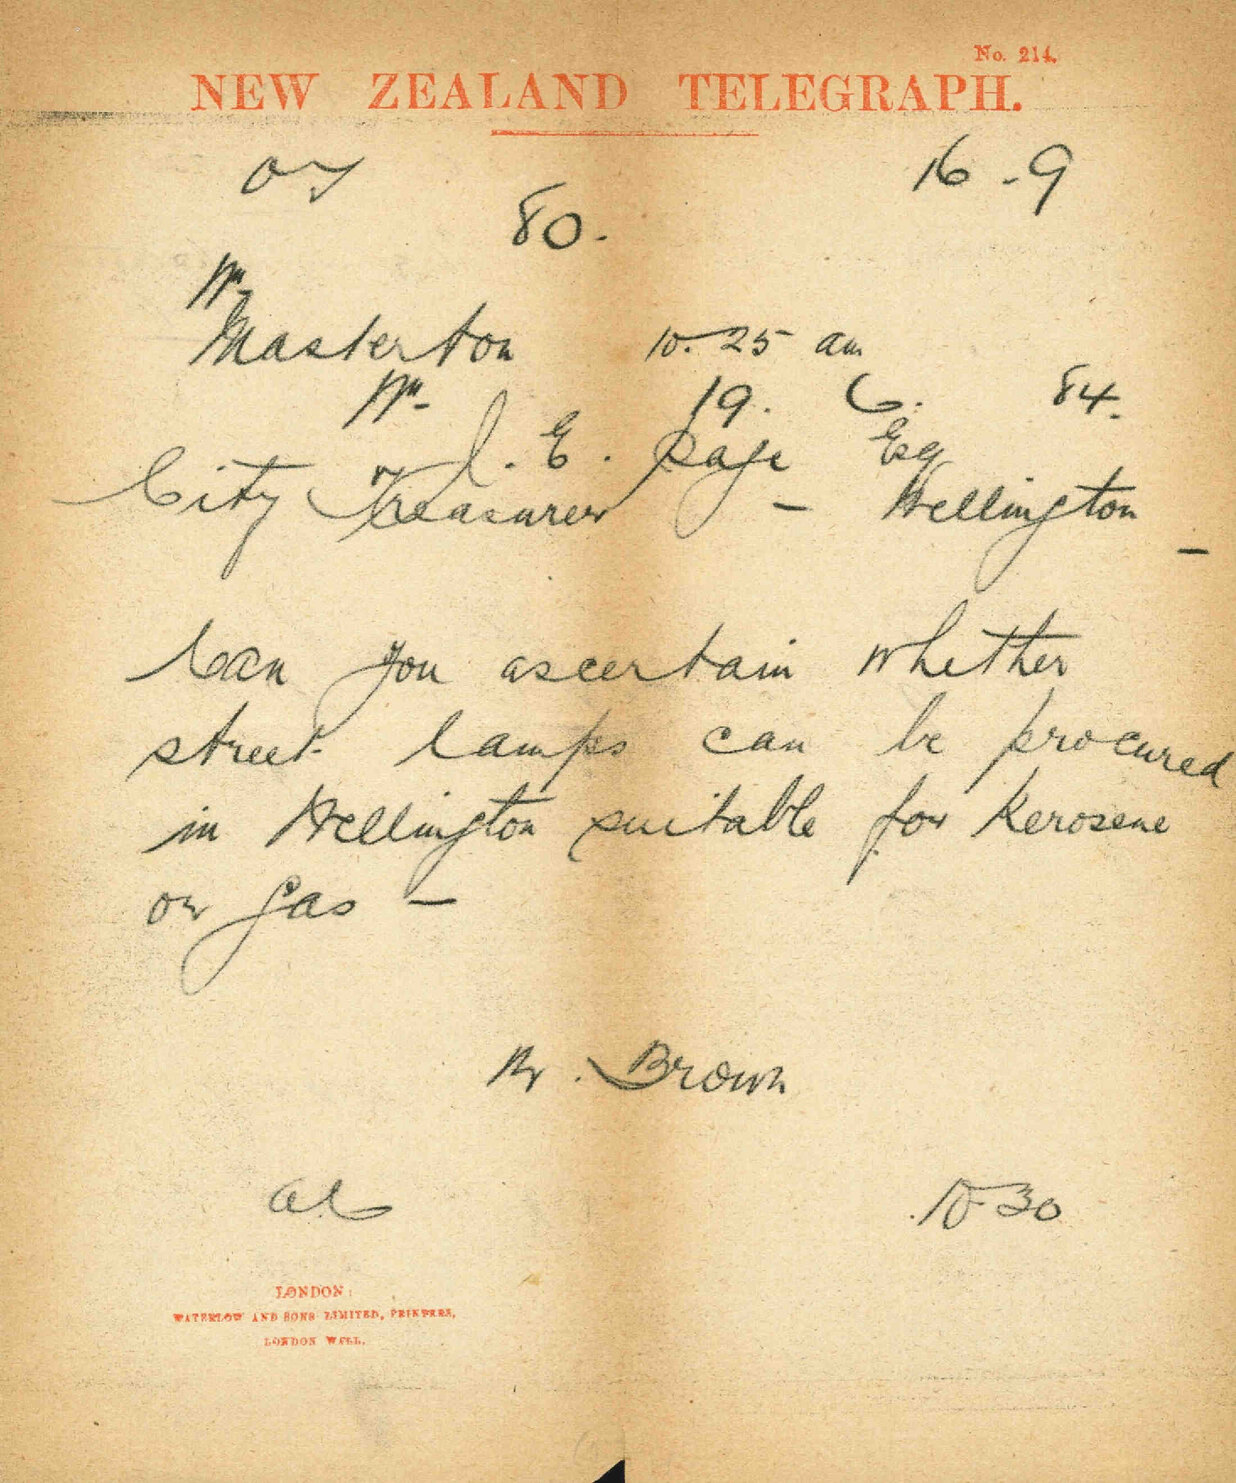 No. 214.
NEW ZEALAND TELEGRAPH.
16-9
80.
Masterton 10.25 am
19. 6. 84.
J. E. Page Esq
City Treasurer - Wellington -
Can you ascertain whether
street lamps can be procured
in Wellington suitable for Kerosene
or gas -
Brown
10-30
LONDON:
WATERLOW AND SONS LIMITED, PRINTERS,
LONDON WALL.